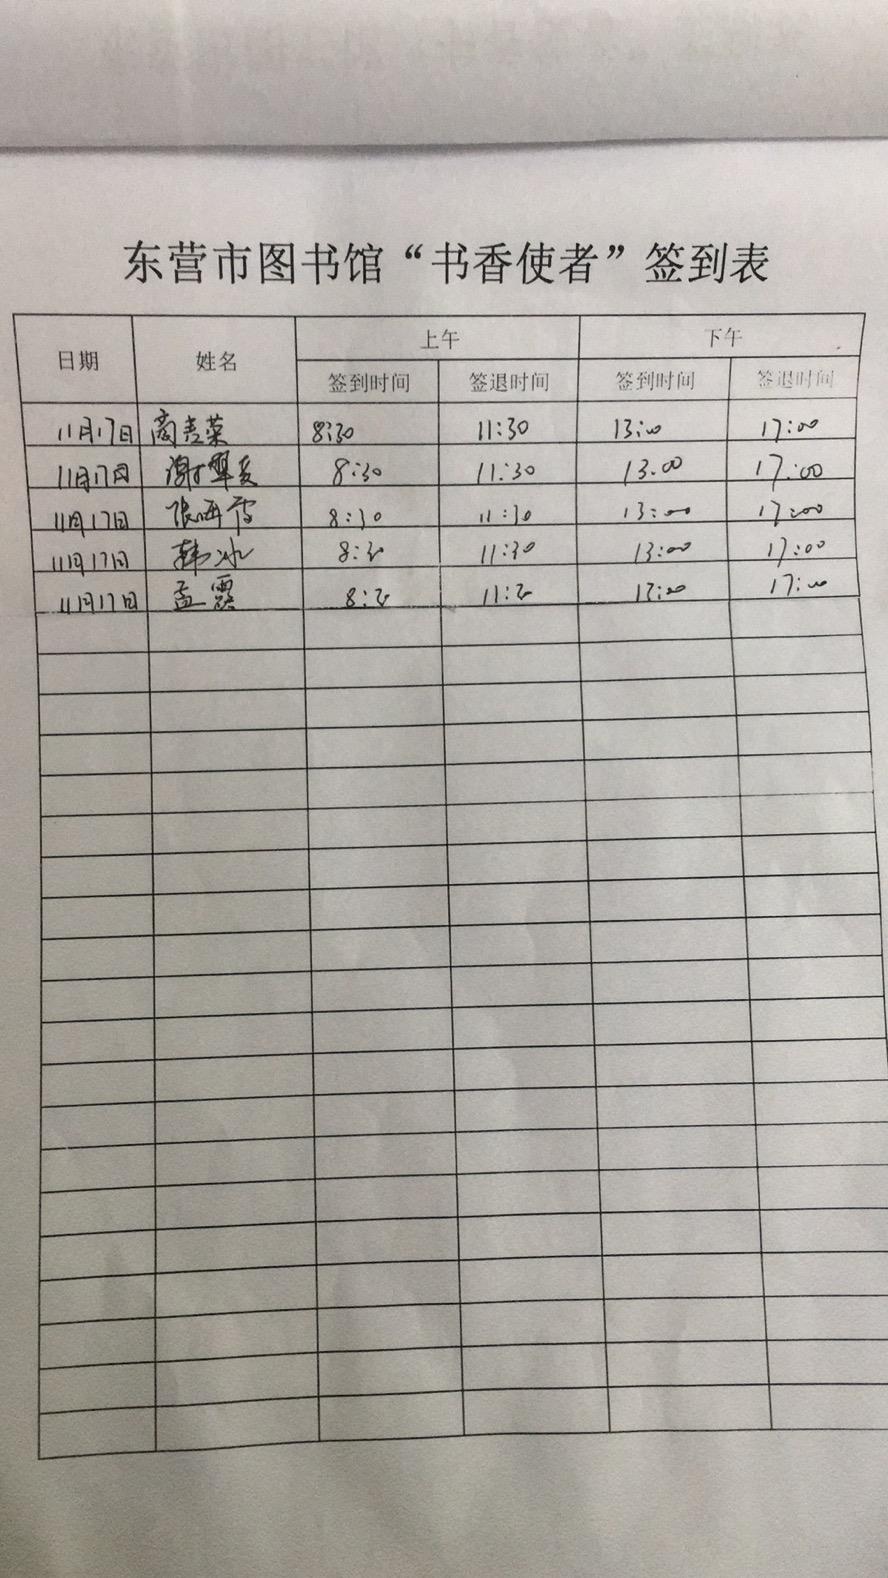 东营市图书馆“书香使者”签到表
日期 姓名 上午 下午
签到时间 签退时间 签到时间 签退时间
11月17日 8:30 11:30 13:00 17:00
11月17日 谢翠 8:30 11:30 13:00 17:00
11月17日 张 8:30 11:30 13:00 17:00
11月17日 韩冰 8:30 11:30 13:00 17:00
11月17日 孟霞 8:30 11:30 13:00 17:00